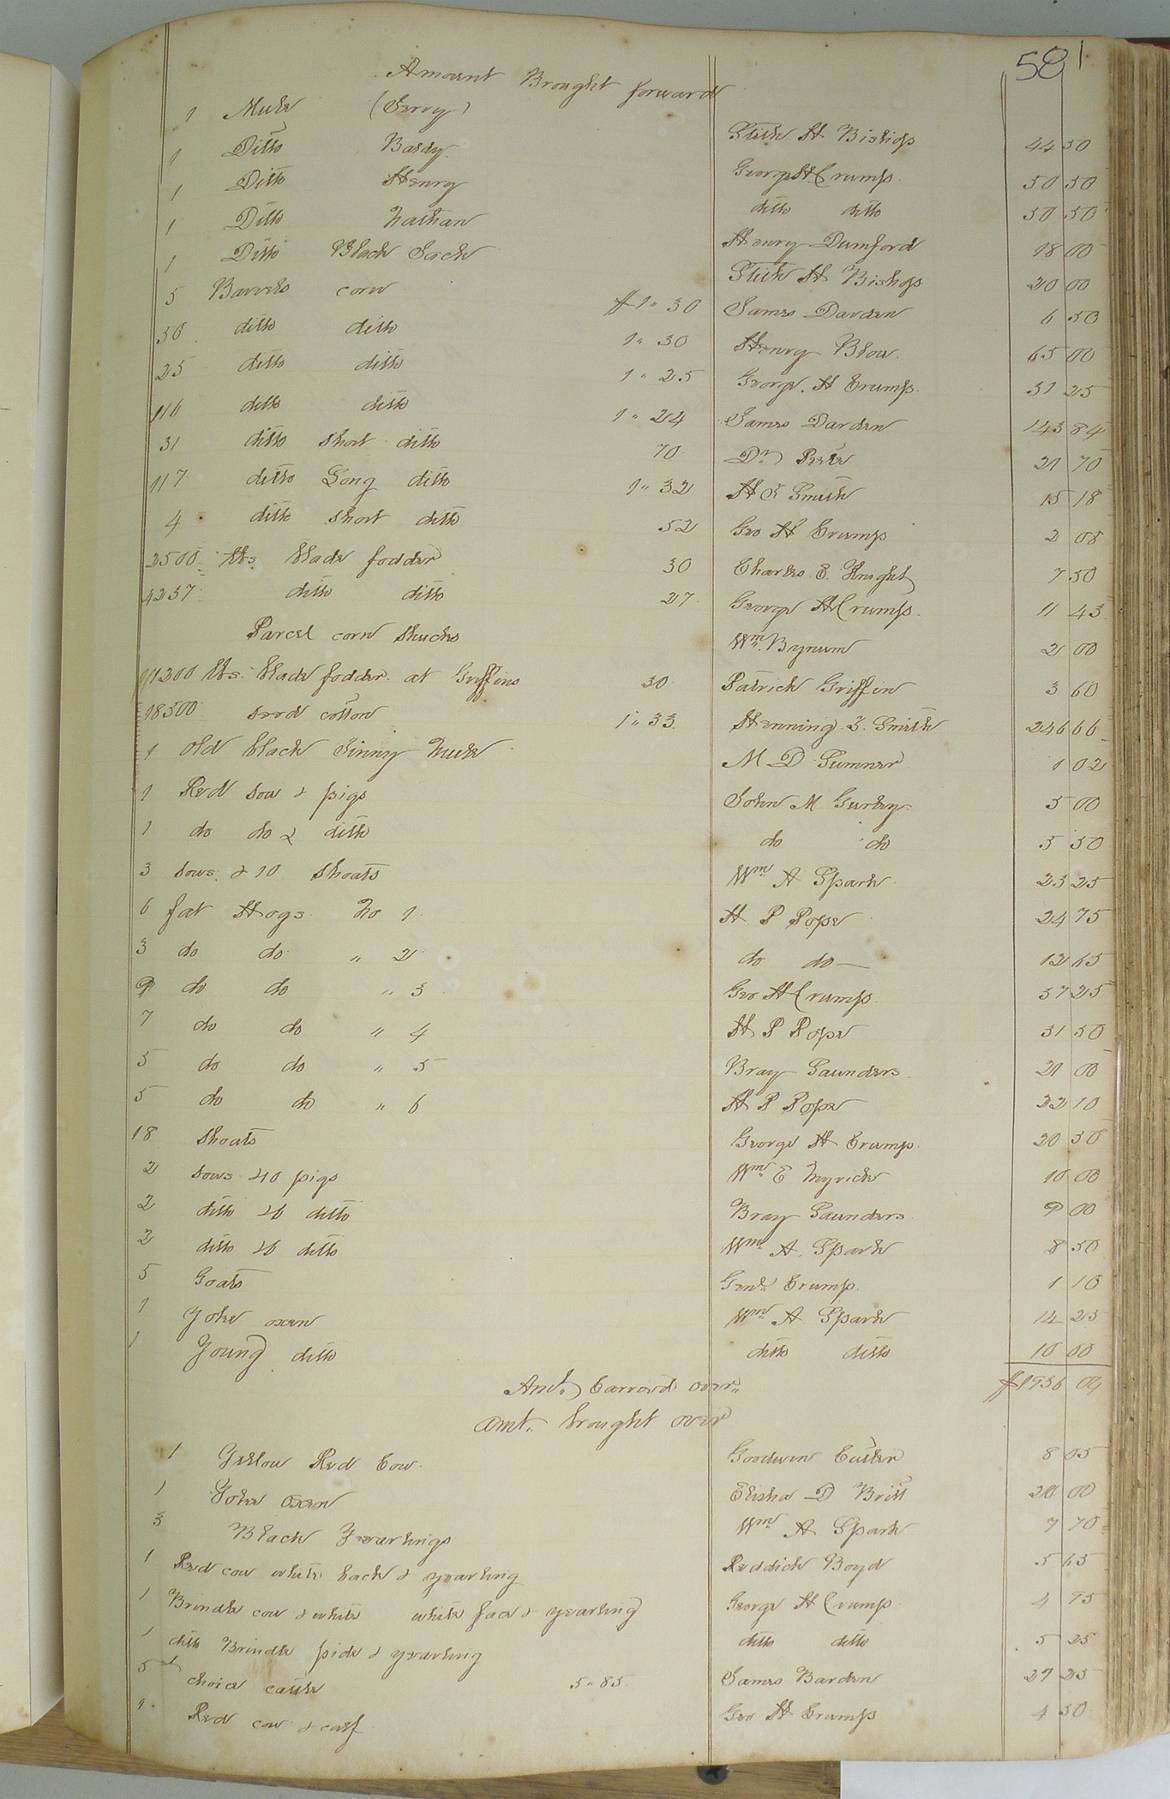 581
Amount Brought forward
1 Mule (Gray) Stith H. Bishop 44 50
1 Ditto Baldy George H Crump 50 50
1 Ditto Henry ditto ditto 50 50
1 Ditto Nathan Henry Dumford 18 00
1 Ditto Black Jack Stith H Bishop 20 00
5 Barrels corn $1" 30 James Darden 6 50
50 ditto ditto 1" 30 Henry Blow 65 00
25 ditto ditto 1" 25 George H Crump 31 25
116 ditto ditto 1" 24 James Darden 143 84
31 ditto short ditto 70 Dr 21 70
117 ditto Long ditto 1" 32 Smith 15 18
4 ditto short ditto 52 Geo H Crump 2 08
2500 lbs blade fodder 30 Charles E. Knight 7 50
4237 ditto ditto 27 George H Crump 11 43
Parcel corn shucks Wm. Bynum 2 00
lbs. blade fodder at Griffins 30 Patrick Griffin 3 60
18500 seed cotton 1" 33 Henning Smith 246 66
1 old black Jinny Mule M D Sumner 1 02
1 Red sow & pigs John M Gurley 5 00
1 do do & ditto do do 5 50
3 sows & 10 shoats Wm A Spark 23 25
6 fat Hogs No 1 H P Pope 24 75
3 do do " 2 do do 12 65
9 do do " 3 Geo H Crump 37 25
7 do do " 4 H P Pope 31 50
5 do do " 5 Bray Saunders 21 00
5 do do " 6 H P Pope 32 10
18 shoats George H Crump 20 50
2 sows & 10 pigs Wm E Myrick 10 00
2 ditto & 6 ditto Bray Saunders 9 00
2 ditto & 6 ditto Wm A Spark 8 50
5 Goats Crump 1 10
1 Yoke oxen Wm A Spark 14 25
1 Young ditto ditto ditto 10 00
Amt. Carried over" $1936 04
amt. brought over
1 Yellow Red Cow Goodwin 8 05
1 Yoke oxen Elisha D Britt 20 00
3 Black Yearlings Wm A Spark 7 70
1 Red cow white back & yearling Reddick Boyd 5 65
1 Brindle cow & white white face & yearling George H Crump 4 95
1 ditto Brindle pide & yearling ditto ditto 5 25
5 choice cattle 5" 85 James Barden 29 25
1 Red cow & calf Geo H Crump 4 50